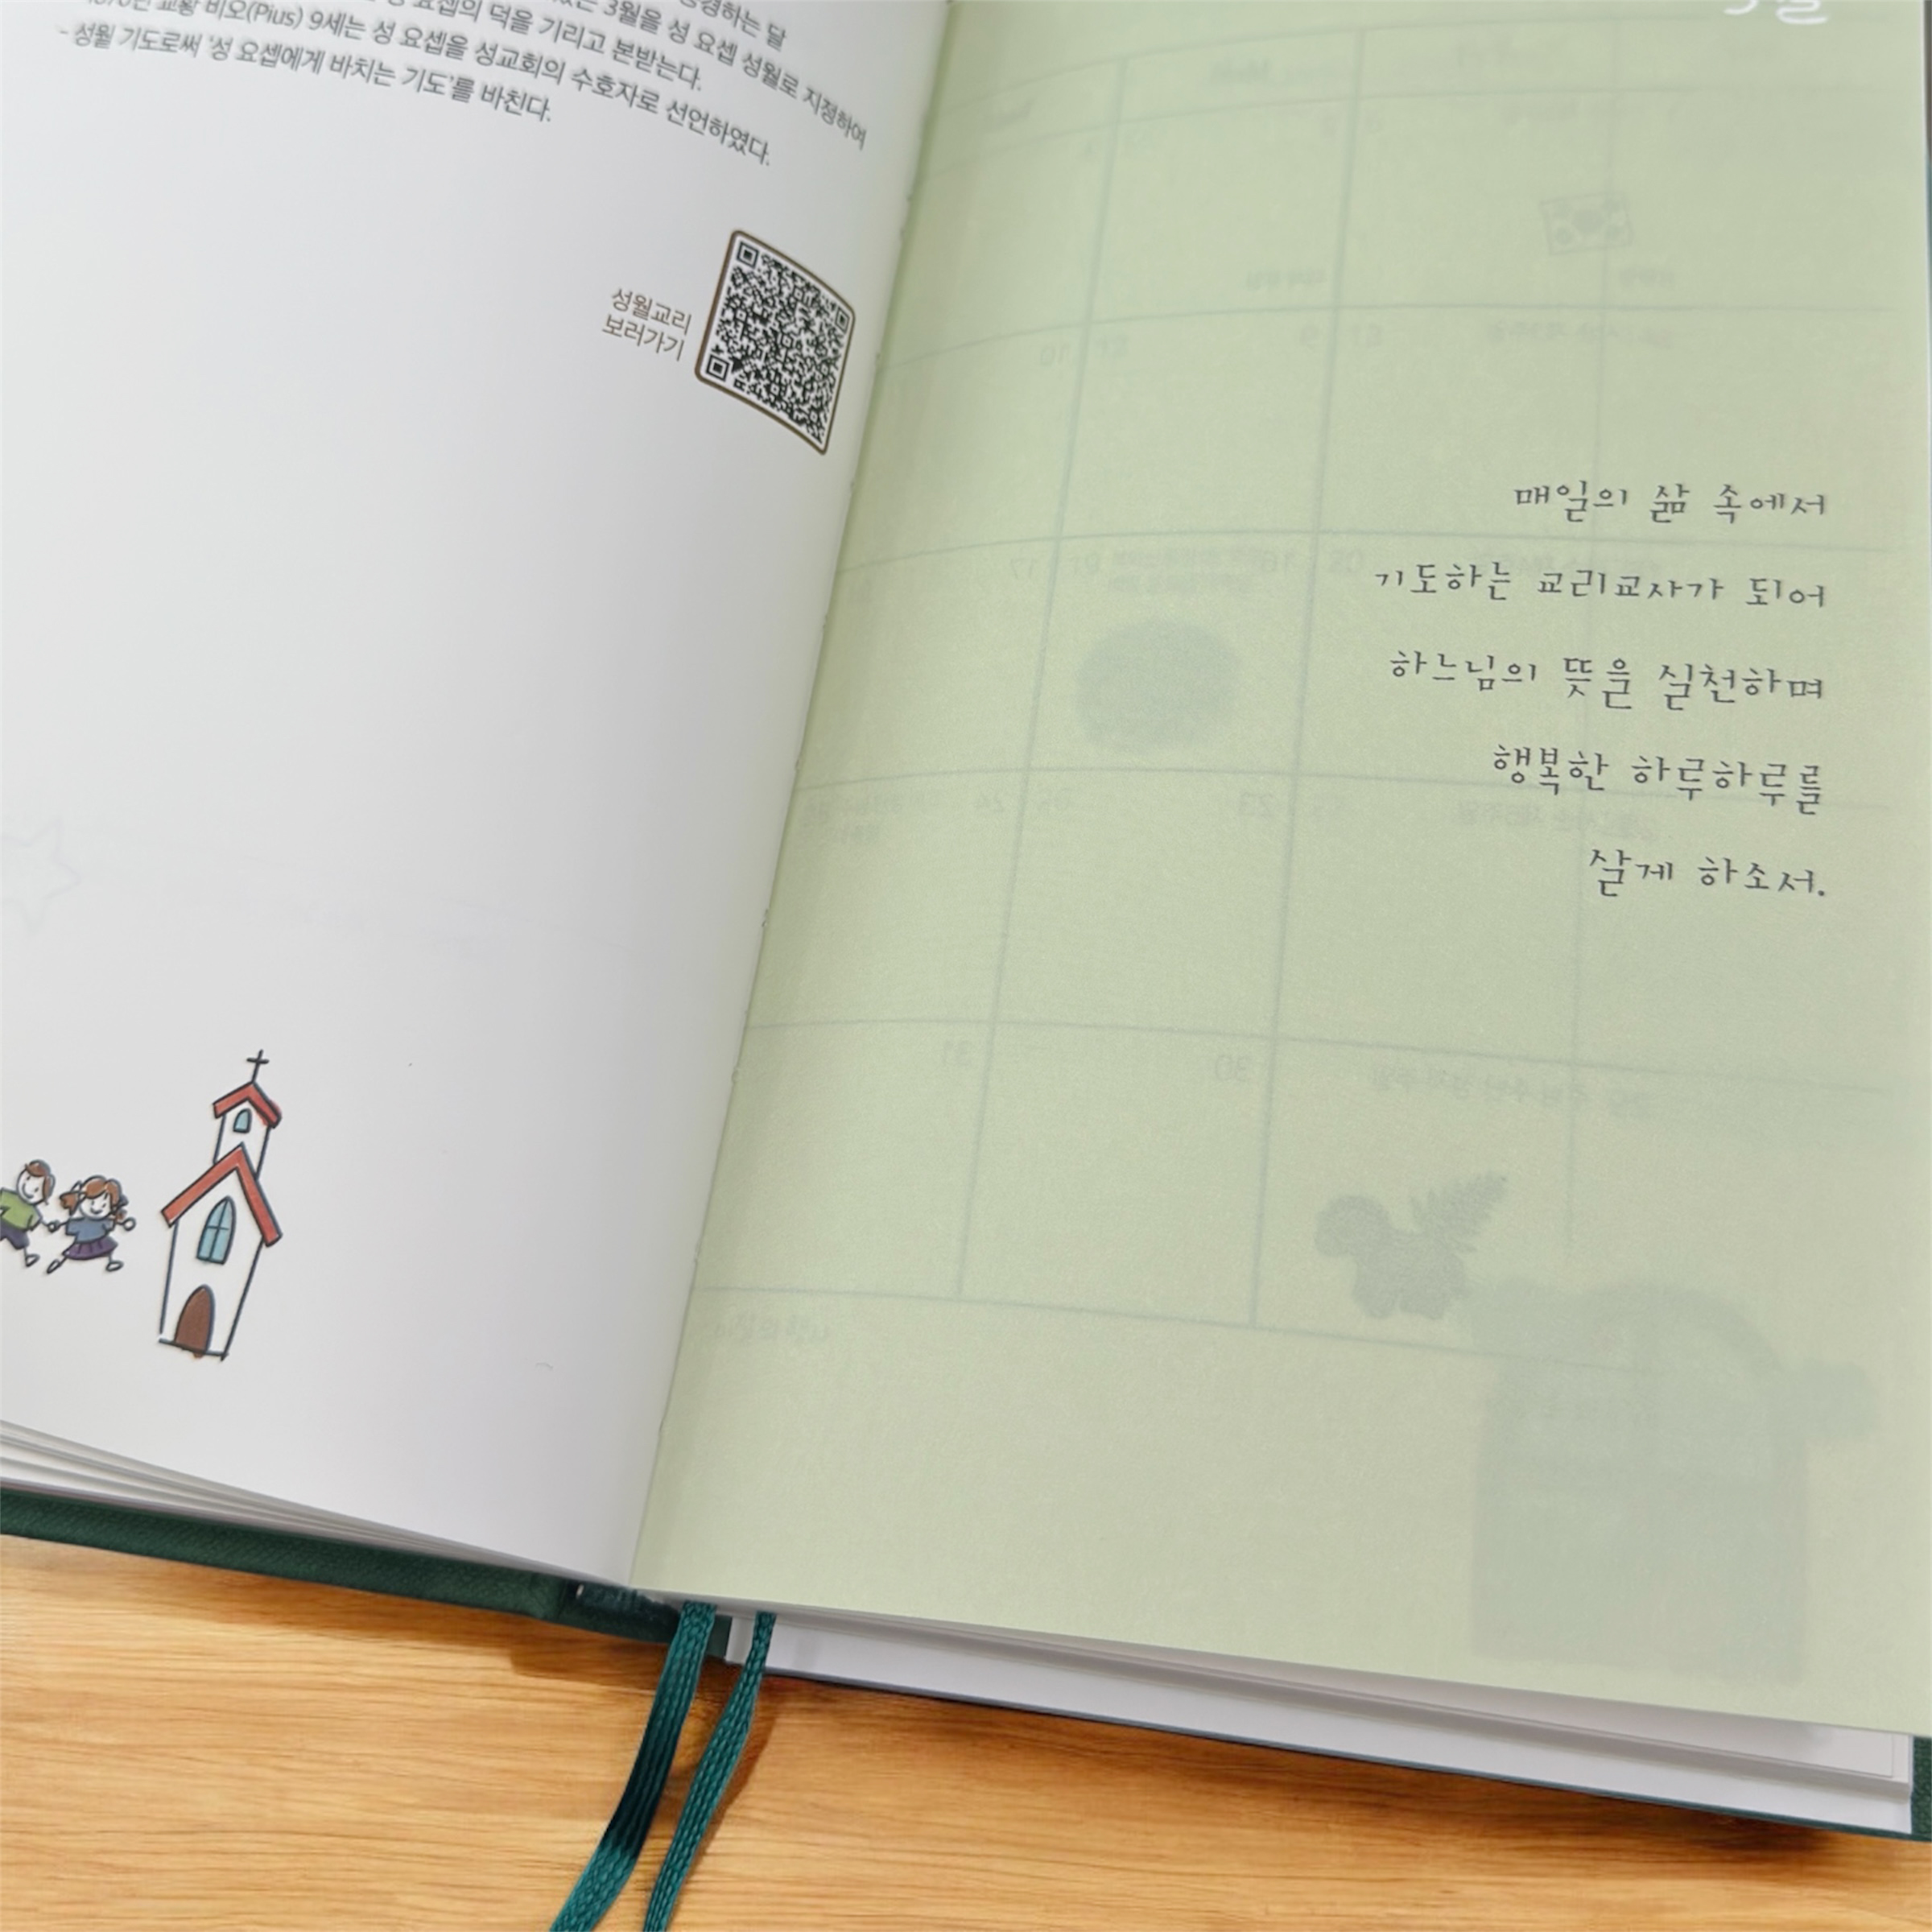 공경하는 달
3월을 성 요셉 성월로 지정하여
요셉의 덕을 기리고 본받는다.
교황 비오(Pius) 9세는 성 요셉을 성교회의 수호자로 선언하였다.
- 성월 기도로써 '성 요셉에게 바치는 기도'를 바친다.
성월교리
보러가기
3월
매일의 삶 속에서
기도하는 교리교사가 되어
하느님의 뜻을 실천하며
행복한 하루하루를
살게 하소서.